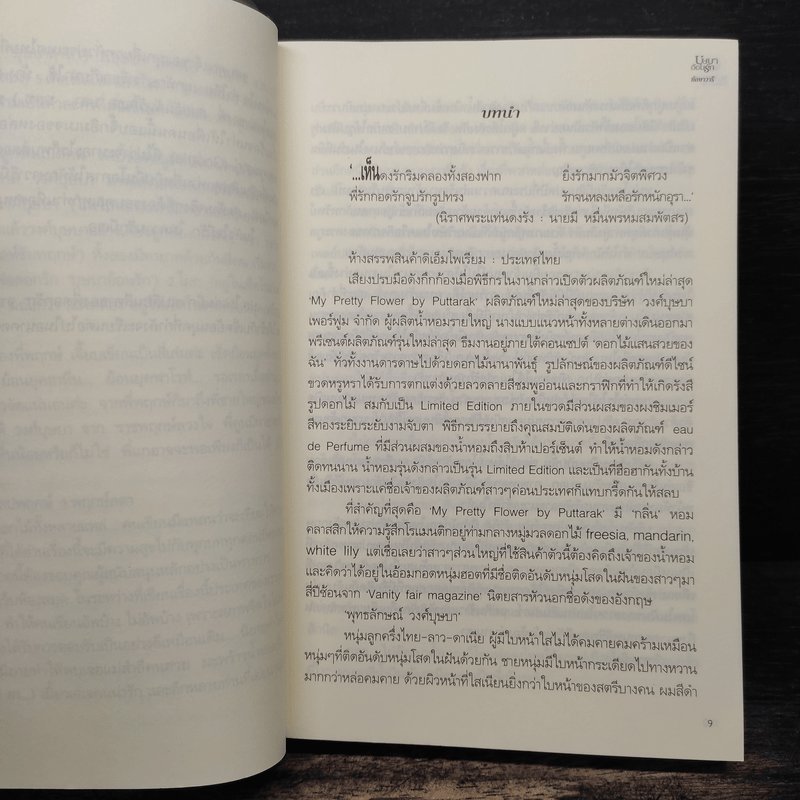 บุษบา
ซ่อนรัก
บทนำ
'...เห็นดงรักริมคลองทั้งสองฟาก ยิ่งรักมากมัวจิตพิศวง
พี่รักกอดรักจูบรักรูปทรง รักจนหลงเหลือรักหนักอุรา...'
(นิราศพระแท่นดงรัง : นายมี หมื่นพรหมสมพัตสร)
ห้างสรรพสินค้าดิเอ็มโพเรียม : ประเทศไทย
เสียงปรบมือดังกึกก้องเมื่อพิธีกรในงานกล่าวเปิดตัวผลิตภัณฑ์ใหม่ล่าสุด
'My Pretty Flower by Puttarak' ผลิตภัณฑ์ใหม่ล่าสุดของบริษัท วงศ์บุษบา
เพอร์ฟูม จำกัด ผู้ผลิตน้ำหอมรายใหญ่ นางแบบแนวหน้าทั้งหลายต่างเดินออกมา
พรีเซนต์ผลิตภัณฑ์รุ่นใหม่ล่าสุด ธีมงานอยู่ภายใต้คอนเซปต์ 'ดอกไม้แสนสวยของ
ฉัน' ทั่วทั้งงานดารดาษไปด้วยดอกไม้นานาพันธุ์ รูปลักษณ์ของผลิตภัณฑ์ดีไซน์
ขวดหรูหราได้รับการตกแต่งด้วยลวดลายสีชมพูอ่อนและกราฟิกที่ทำให้เกิดรังสี
รูปดอกไม้ สมกับเป็น Limited Edition ภายในขวดมีส่วนผสมของผงชิมเมอร์
สีทองระยิบระยับงามจับตา พิธีกรบรรยายถึงคุณสมบัติเด่นของผลิตภัณฑ์ eau
de Perfume ที่มีส่วนผสมของน้ำหอมถึงสิบห้าเปอร์เซ็นต์ ทำให้น้ำหอมดังกล่าว
ติดทนนาน น้ำหอมรุ่นดังกล่าวเป็นรุ่น Limited Edition และเป็นที่ฮือฮากันทั้งบ้าน
ทั้งเมืองเพราะแค่ชื่อเจ้าของผลิตภัณฑ์สาวๆค่อนประเทศก็แทบกรี๊ดกันให้สลบ
ที่สำคัญที่สุดคือ 'My Pretty Flower by Puttarak' มี 'กลิ่น' หอม
คลาสสิกให้ความรู้สึกโรแมนติกอยู่ท่ามกลางหมู่มวลดอกไม้ freesia, mandarin,
white lily แต่เชื่อเลยว่าสาวๆส่วนใหญ่ที่ใช้สินค้าตัวนี้ต้องคิดถึงเจ้าของน้ำหอม
และคิดว่าได้อยู่ในอ้อมกอดหนุ่มฮอตที่มีชื่อติดอันดับหนุ่มโสดในฝันของสาวๆมา
สี่ปีซ้อนจาก 'Vanity fair magazine' นิตยสารหัวนอกชื่อดังของอังกฤษ
'พุทธลักษณ์ วงศ์บุษบา'
หนุ่มลูกครึ่งไทย-ลาว-ดาเนีย ผู้มีใบหน้าใสไม่ได้คมคายคมคร้ามเหมือน
หนุ่มๆที่ติดอันดับหนุ่มโสดในฝันด้วยกัน ชายหนุ่มมีใบหน้ากระเดียดไปทางหวาน
มากกว่าหล่อคมคาย ด้วยผิวหน้าที่ใสเนียนยิ่งกว่าใบหน้าของสตรีบางคน ผมสีดำ
9